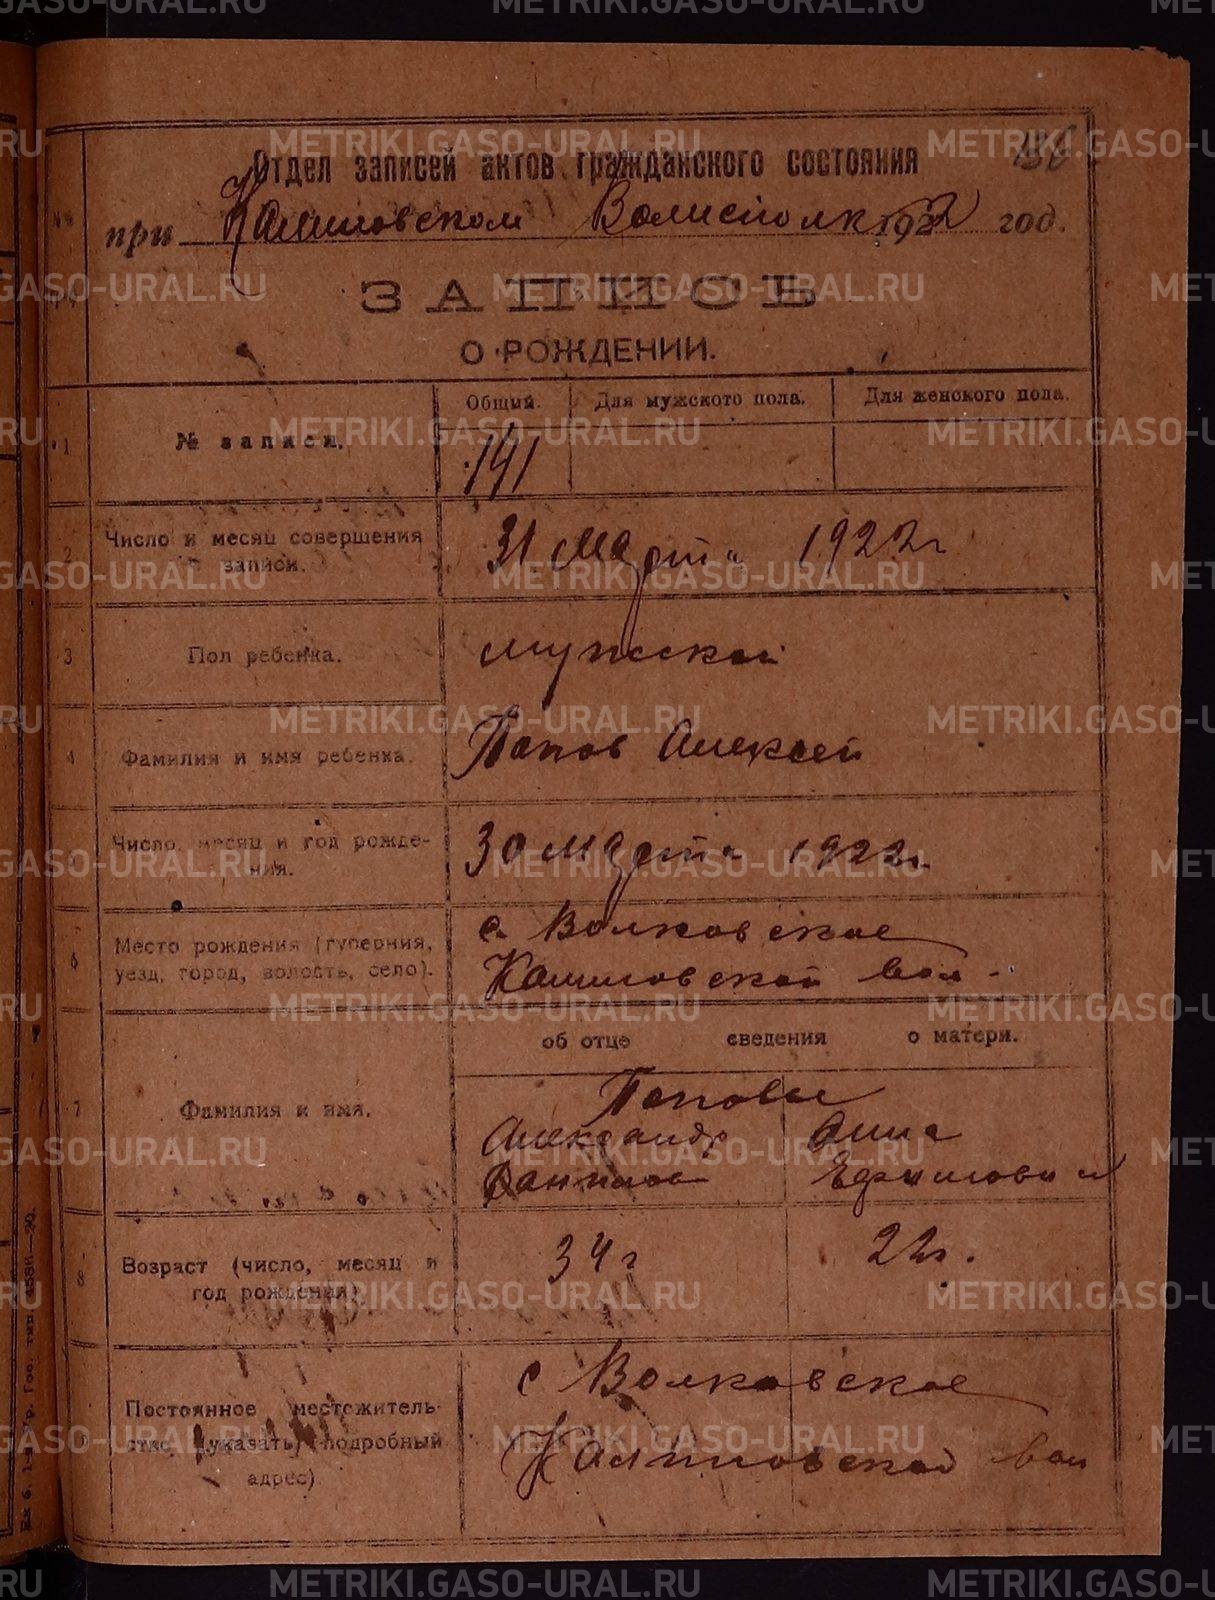 METRIKI.GASO-URAL.RU
Отдел записей актов гражданского состояния
при Камышловском Волисполк 1922 год.
ЗАПИСЬ
О РОЖДЕНИИ.
Общий. Для мужского пола. Для женского пола.
1 № записи. 141
2 Число и месяц совершения записи. 31 Марта 1922 г
3 Пол ребенка. мужской
4 Фамилия и имя ребенка. Попов Алексей
Число, месяц и год рожде-
ния. 30 марта 1922 г.
с. Волковское
6 Место рождения (губерния,
уезд, город, волость, село). вол.
об отце сведения о матери.
Поповы
7 Фамилия и имя. Александр Анна
Данилов Ефимовна
8 Возраст (число, месяц и
год рождения). 34 г 22 г.
с Волковское
Постоянное местожитель-
ство (указать подробный
адрес) вол